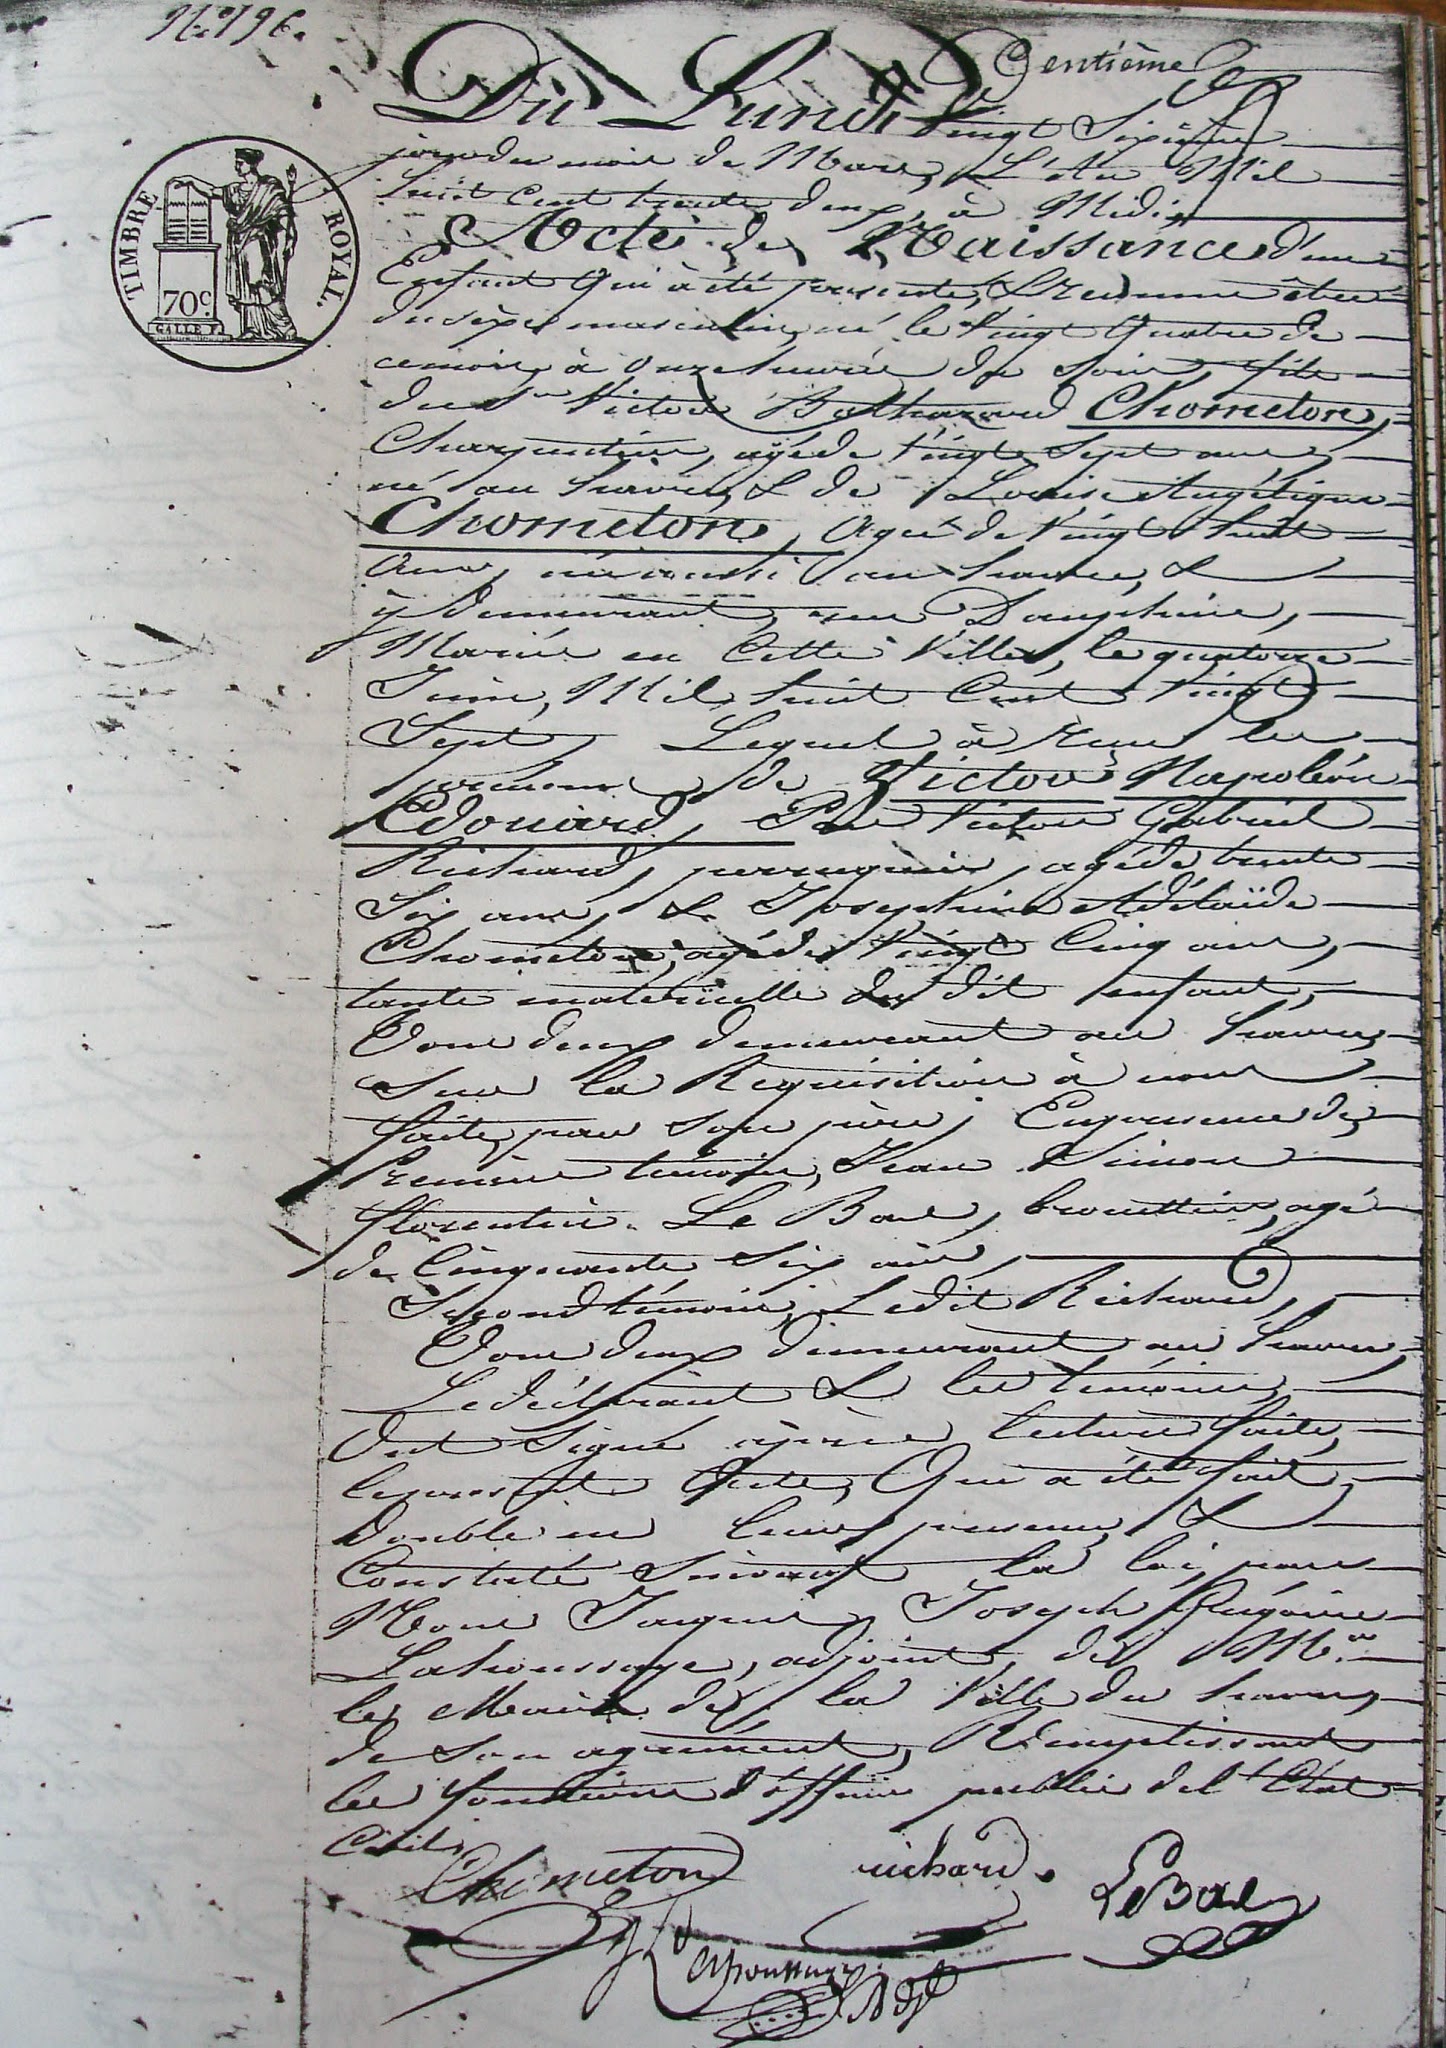 N.° 196.
Centième
Du Lundi Vingt Sixième
jour du mois de Mars, L'An Mil
huit Cent trente deux, à Midi,
Acte de Naissance d'un
Enfant Qui a été présenté, & reconnu être
du sexe masculin, né le Vingt Quatre de
ce mois, à onze heures du soir, fils
du Sr Victor Balthazard Chometon,
Charpentier, agé de Vingt Sept ans,
né au havre, & de Louise Angélique
Chometon, Agée de Vingt huit
Ans, née aussi au havre, &
y demeurant, rue Dauphine,
Mariés en Cette Ville, le quatorze
Juin, Mil huit Cent Vingt
Sept, Lequel a reçu les
prénoms de Victor Napoléon
Edouard, Par Victor Gabriel
Richard, perruquier, agé de trente
Six ans, & Joséphine Adélaïde
Chometon, agée de Vingt Cinq ans,
tante maternelle du dit enfant,
Tous deux demeurant au havre,
Sur la Réquisition à nous
faite par son père, En présence de,
Premier témoin, Jean Simon
florentin Le Bas, brouettier, agé
de Cinquante Six ans,
Second témoin, Ledit Richard,
Tous deux demeurant au havre,
Le déclarant & les témoins
Ont Signé après lecture faite,
le présent Acte, Qui a été fait
double en leur présence, &
Constaté Suivant la loi, par
Nous Jacques, Joseph Grégoire
Lahoussaye, adjoint de Mr
le Maire de la Ville du havre,
de Son agrément, Remplissant
les fonctions d'officier public de l'Etat
Civil,
Chometon richard. LeBas
Lahoussaye Adjt
TIMBRE ROYAL.
70c
GALLE F.